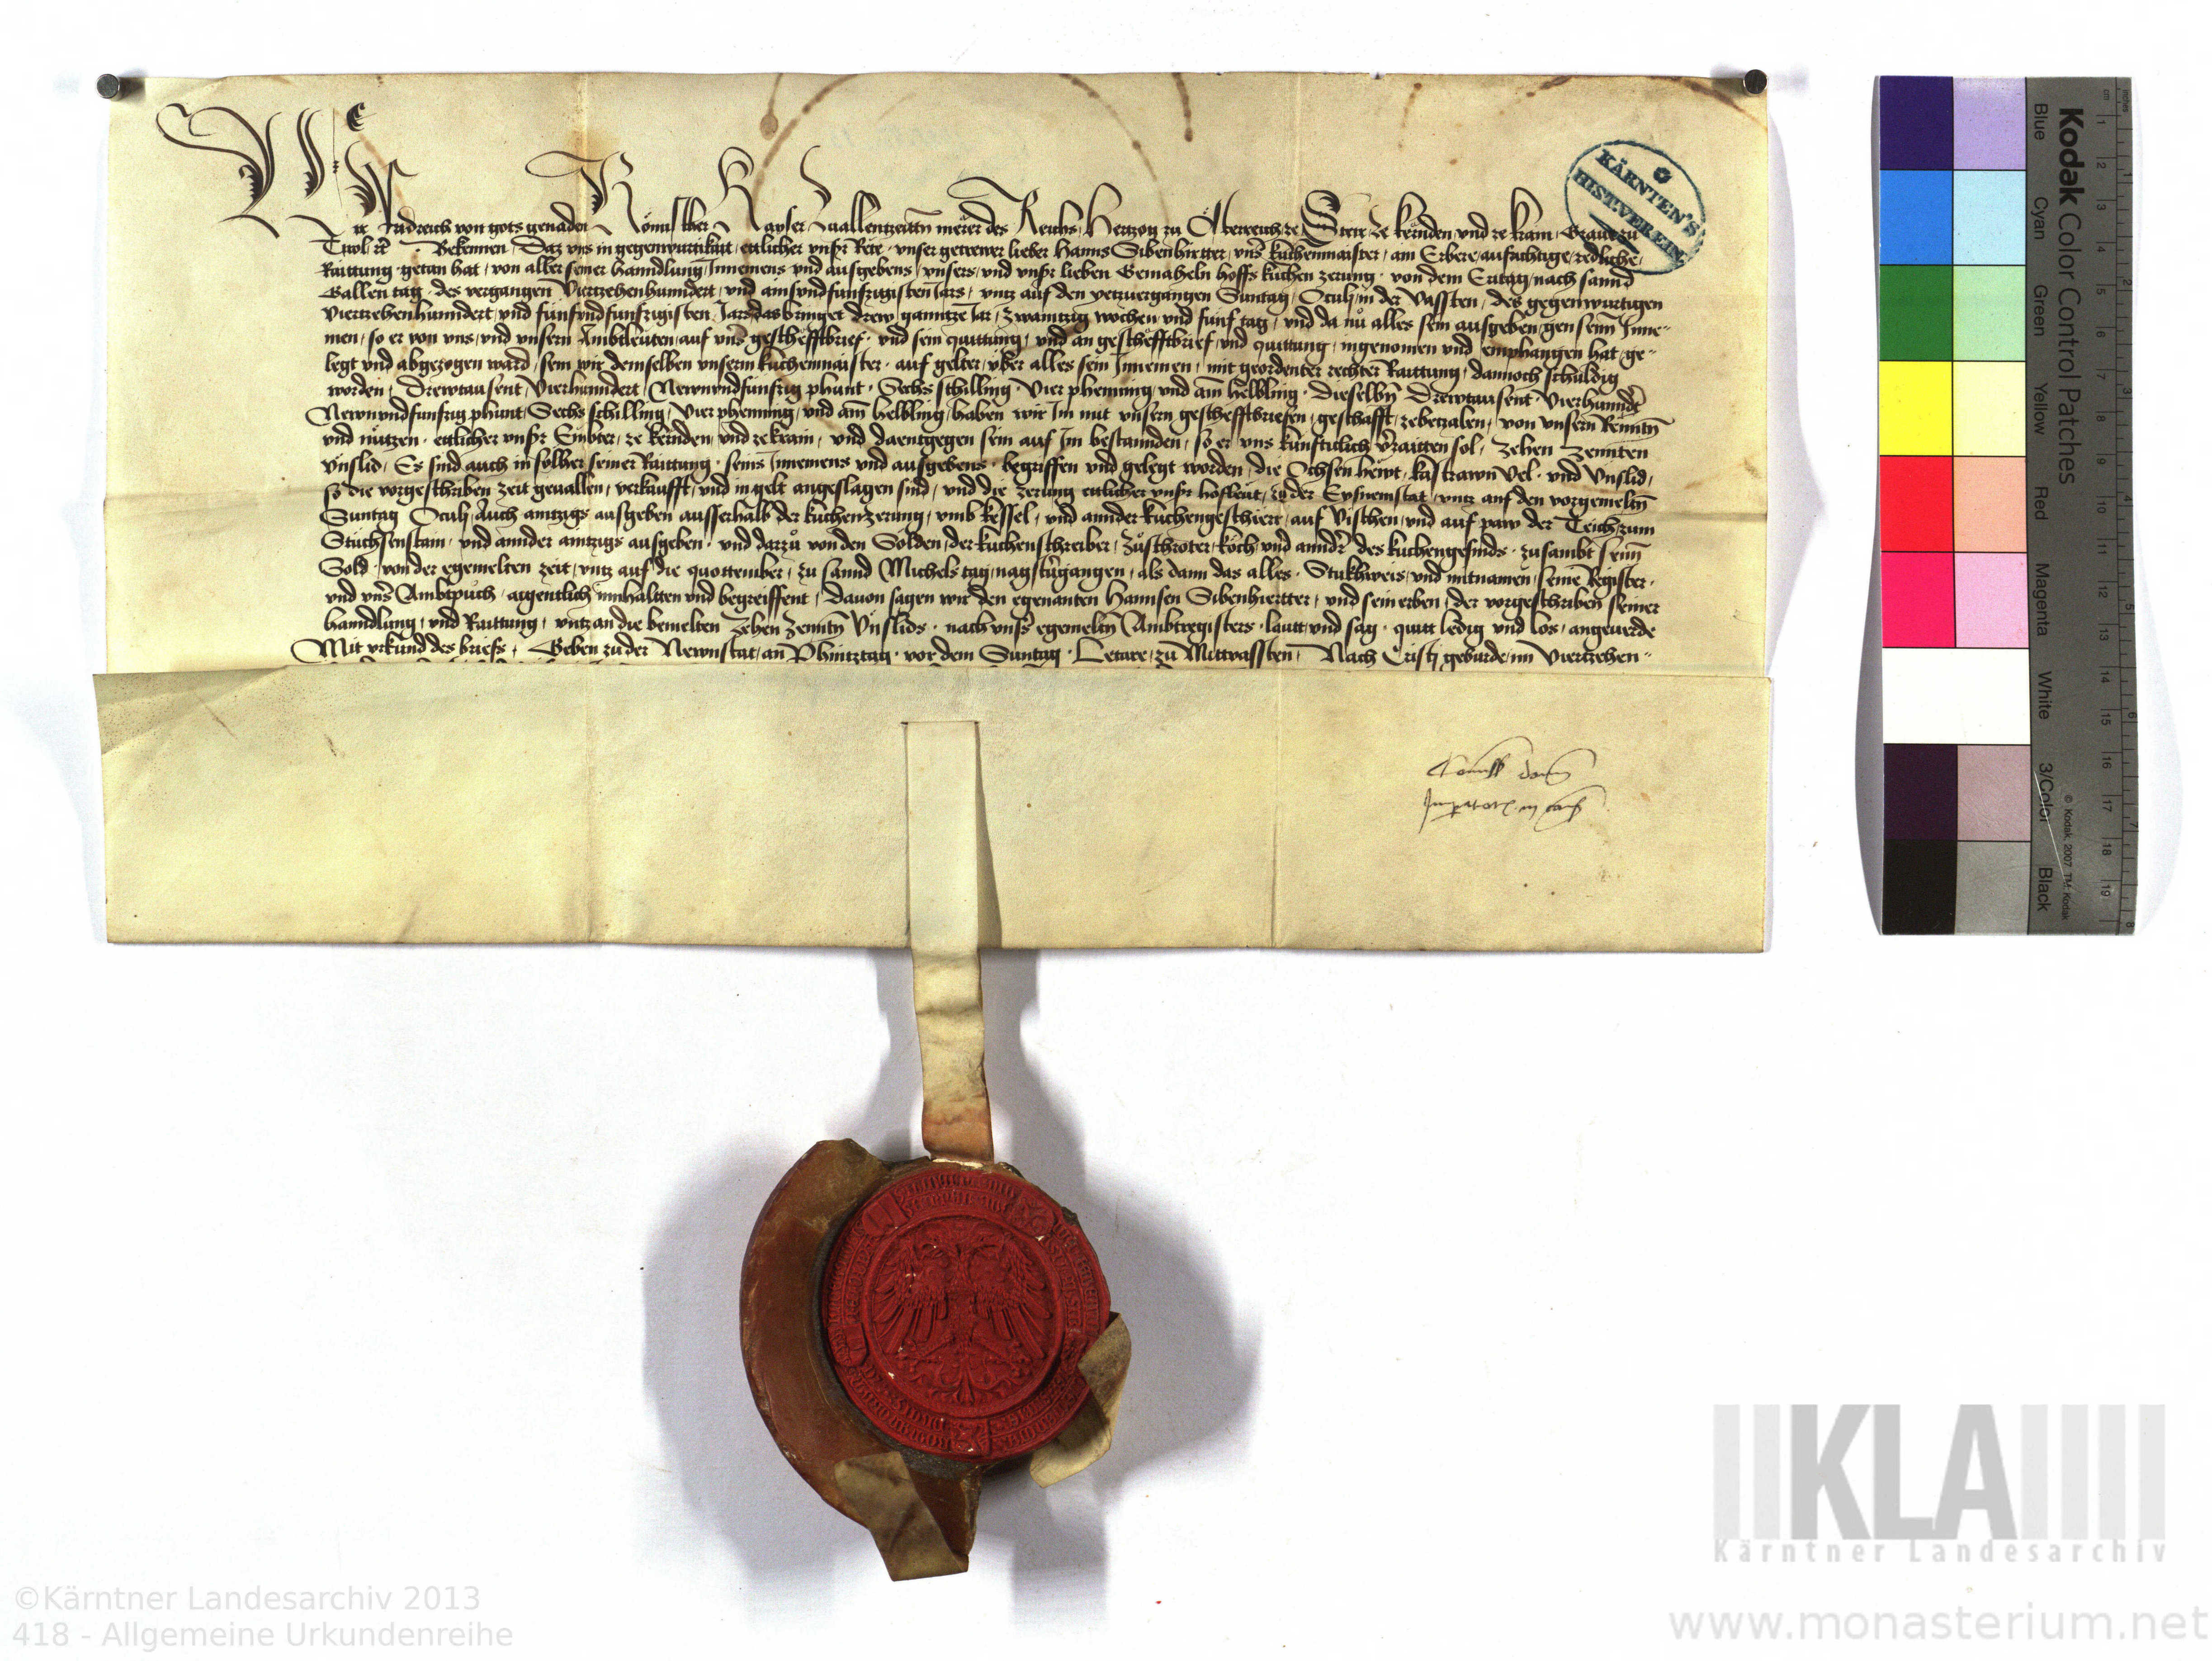 Wir Fridreich von gots genaden Römischer Kayser Zuallentzeitten merer des Reichs Hertzog zu Österreich ze Steir ze kernden und ze krain Graue zu
Tirol etc Bekennen Daz vns in gegenwurtikait ettlicher vnsr Rete vnser getrewer lieber Hanns Sibenhirtter vnser kuchenmaister ain Erbere aufrichtige redliche
Raittung getan hat von aller seiner hanndlung Innemens vnd ausgebens vnsers vnd vnsr lieben Gemaheln hoffs kuchen zerung von dem Eritag nach sannd
Gallen tag des vergangen Viertzehenhunndert vnd ainsvndfunfzigisten Jars vntz auf den yetzvergangen Suntag Oculi in der Vassten des gegenwurtigen
Viertzehenhunndert vnd fünfvndfunfzigisten Jars das bringet drew ganntze Jar zwaintzig wochen vnd fünf tag vnd da nu alles sein ausgeben gen seim Inne-
men so er von vns vnd vnsern Ambtleuten auf vnser geschefftbrief vnd sein quittung vnd an geschefftbrief vnd quittung ingenomen vnd emphangen hat ge-
legt vnd abgezogen ward sein wir demselben vnserm kuchenmaister auf gelter vber alles sein Innemen mit geordenter rechter Raittung dannoch schuldig
worden Drewtausent Vierhunndert Newnvndfunfzig phunt Sechs schilling Vier phenning vnd ain helbling Dieselbn Drewtausent Vierhunndert
Newnvndfunfzig phunt Sechs schilling Vier phenning vnd ain helbling haben wir Im mit vnsern geschefftbriefen geschafft zebetzalen von vnsern Renntn
vnd nutzen ettlicher vnsr Embter ze kernden vnd ze krain vnd daentgegen sein auf Im bestannden so er vns kunfticlich verraitten sol Zehen Zennten
Vnslid Es sind auch in solher seiner Raittung seins Innemens vnd ausgebens begriffen vnd gelegt worden die Ochsen hewt kastrawn vel vnd Vnslid
so die vorgeschriben zeit geuallen verkaufft vnd in gelt angeslagen sind vnd die zerung ettlicher vnsr hofleut zu der Eysneinstat vntz auf den vorgemeltn
Suntag Oculi Auch aintzigs ausgeben ausserhalb der kuchenzerung vmb kessel vnd annder kuchengeschierr auf Vischen vnd auf paw der Teich zum
Stüchsenstain vnd annder aintzigs ausgeben vnd darzu von den Solden der kuchenschreiber Zuschroter köch vnd annder des kuchengesinds zusambt seim
Sold von der egemelten zeit vntz auf die quottember zu sannd Michels tag nagstuergangen als dann das alles Stukhweis vnd mitnamen seine Register
vnd vnser Ambtpuch aigentlich innhaltten vnd begreiffent Dauon sagen wir den egenanten Hannsen Sibenhirtter vnd sein erben der vorgeschriben seiner
hanndlung vnd Raittung vntz an die bemelten Zehen Zenntn Vnslids nach vnsers egemeltn Ambtregisters lautt vnd sag quitt ledig vnd los angeuerde
Mit vrkund des briefs Geben zu der Newnstat an Phintztag vor dem Suntag Letare zu Mittuassten Nach Cristi geburde im Viertzehen-
Commissio domini
Imperatoris in consilio
KÄRNTEN'S
HIST.VEREIN.
Kodak Color Control Patches
Blue Cyan Green Yellow Red Magenta White 3/Color Black
© Kodak, 2007 TM: Kodak
cm 1 2 3 4 5 6 7 8 9 10 11 12 13 14 15 16 17 18 19
inches 1 2 3 4 5 6 7 8
KLA
Kärntner Landesarchiv
©Kärntner Landesarchiv 2013
418 - Allgemeine Urkundenreihe
www.monasterium.net